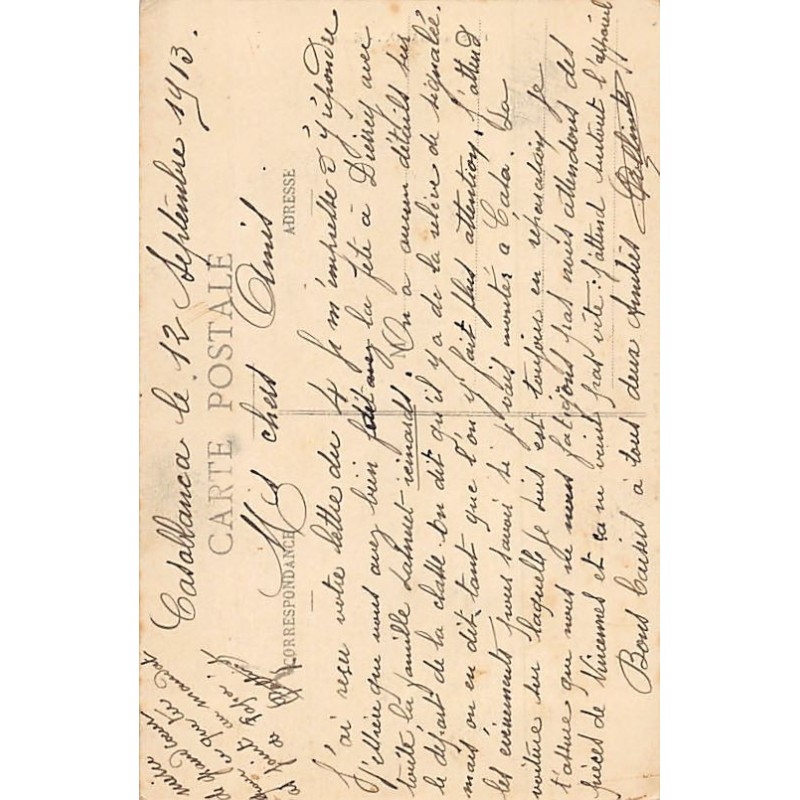 Casablanca le 12 Septembre 1913.
CARTE POSTALE
Mes chers Amis.
CORRESPONDANCE
ADRESSE
J'ai reçu votre lettre du 4 je m'empresse d'y répondre
J'espère que vous avez bien fêté la fête à avec
toute la famille On a aucun détails sur
le départ de la classe. on dit qu'il y a de la relève de signalée.
mais on en dit tant que l'on y fait plus attention, j'attend
les événements pour savoir si je vais monter à Casa. La
voiture sur laquelle je suis est toujours en réparation je
t'assure que nous ne nous fatigons pas nous attendons des
pièces de Vincennes et ça ne vient pas vite: j'attend surtout l'appareil
Bons baisers à tous deux Amitiés